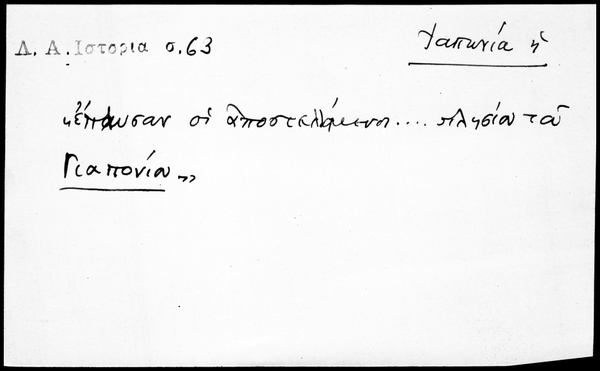 Δ. Α. Ιστορια σ. 63
Ἰαπωνία ἡ
«ἔπαυσαν οἱ ἀποστελλόμενοι .... πλησίον τοῦ
Γιαπονίου»